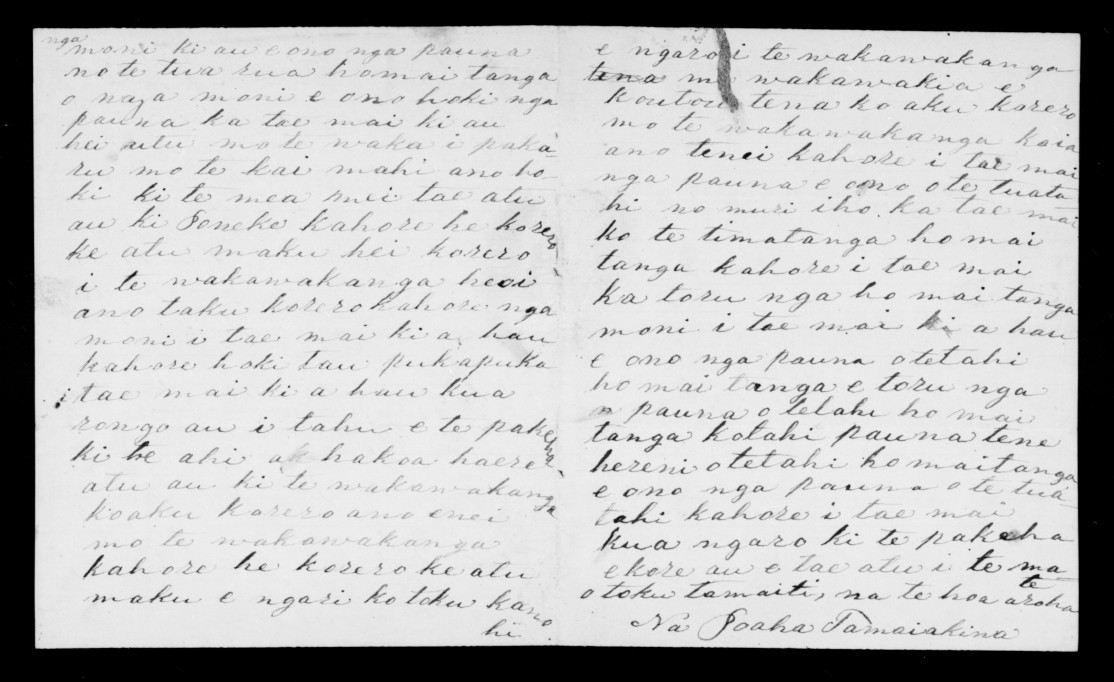 nga
moni ki au e ono nga pauna
no te tua rua homai tanga
o naga moni e ono hoki nga
pauna ka tae mai ki au
hei utu mo te waka i paka-
ru mo te kai mahi ano ho-
ki ki te mea mei tae atu
au ki Poneke kahore he korero
ke atu maku hei korero
i te wakawakanga heoi
ano taku korero kahore nga
moni i tae mai ki a hau
kahore hoki tau pukapuka
i tae mai ki a hau kua
rongo au i tahu e te pakeha
ki te ahi ahakoa haere
atu au ki te wakawakanga
ko aku korero ano enei
mo te wakawakanga
kahore he korero ke atu
maku e ngari ko toku kano
hi
e ngaro i te wakawakanga
tena me wakawakia e
koutou tena ko aku korero
mo te wakawakanga kaia
ano tenei kahore i tae mai
nga pauna e ono o te tuata
hi no muri iho ka tae mai
ko te timatanga homai
tanga kahore i tae mai
ka toru nga homai tanga
moni i tae mai ki a hau
e ono nga pauna o tetahi
homai tanga e toru nga
pauna o tetahi homai
tanga kotahi pauna tene
hereni o tetahi homaitanga
e ono nga pauna o te tua
tahi kahore i tae mai
kua ngaro ki te pakeha
ekore au e tae atu i te ma
te
o toku tamaiti, na te hoa aroha
Na Poaha Tamaiakina